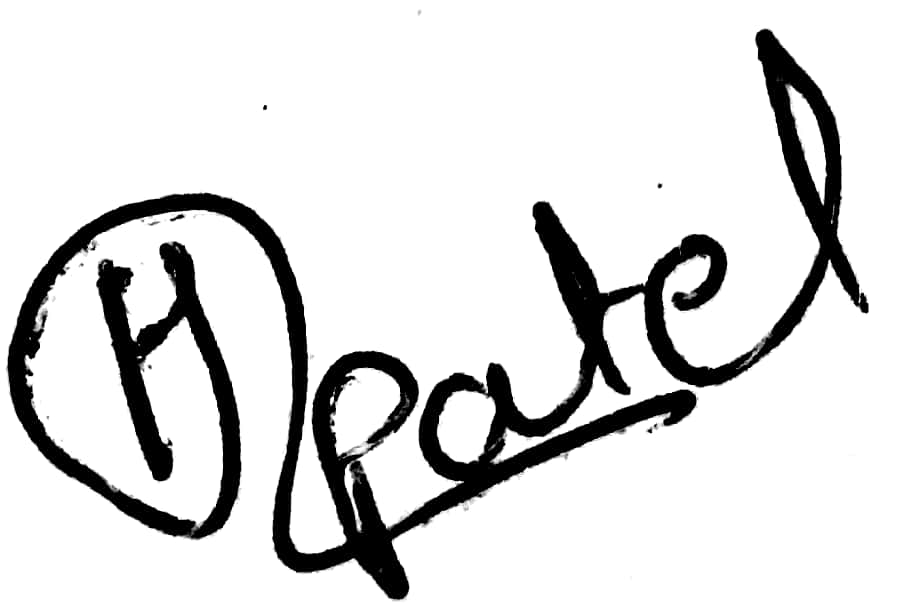 H Patel